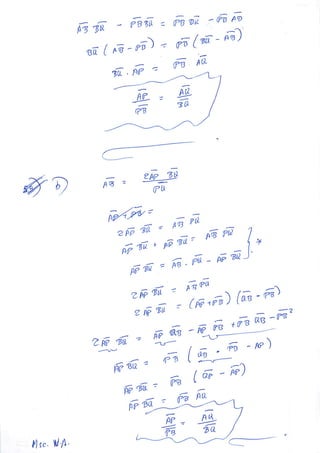 AB BQ - PB BQ = PB BQ - PB AB
BQ ( AB - PB ) = PB ( BQ - AB )
BQ . AP = PB AQ
AP / PB = AQ / BQ
b) AB = 2AP BQ / PQ
2AP BQ = AB PQ
AP BQ + AP BQ = AB PQ
AP BQ = AB . PQ - AP BQ } *
2AP BQ = AB PQ
2AP BQ = (AP + PB) (QB - PB)
2 AP BQ = AP QB - AP PB + PB QB - PB²
AP BQ = PB ( QB - PB - AP )
AP BQ = PB ( QP - AP )
AP BQ = PB AQ
AP / PB = AQ / BQ
Msc. N.A.